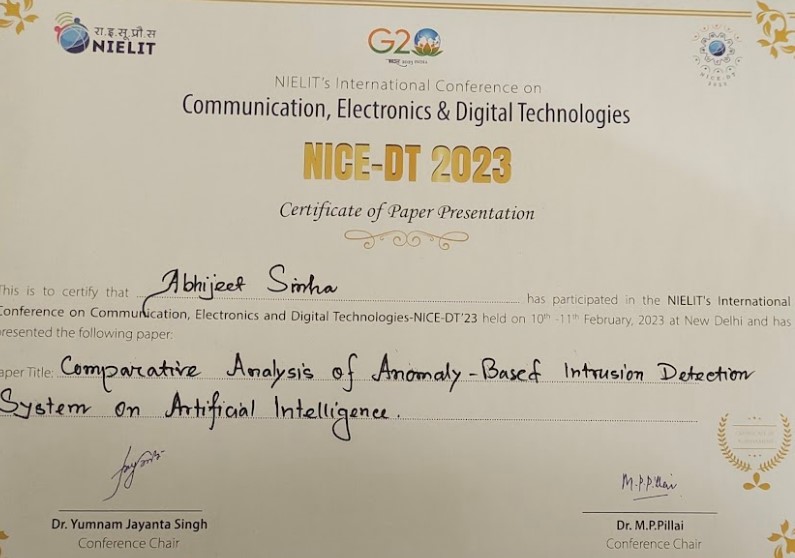 रा.इ.सू.प्रौ.स
NIELIT
G20
NIELIT's International Conference on
Communication, Electronics & Digital Technologies
NICE-DT 2023
Certificate of Paper Presentation
This is to certify that Abhijeet Sinha has participated in the NIELIT's International
Conference on Communication, Electronics and Digital Technologies-NICE-DT'23 held on 10th -11th February, 2023 at New Delhi and has
presented the following paper:
Paper Title: Comparative Analysis of Anomaly-Based Intrusion Detection
System on Artificial Intelligence.
M.P.Pillai
Dr. Yumnam Jayanta Singh
Conference Chair
Dr. M.P.Pillai
Conference Chair